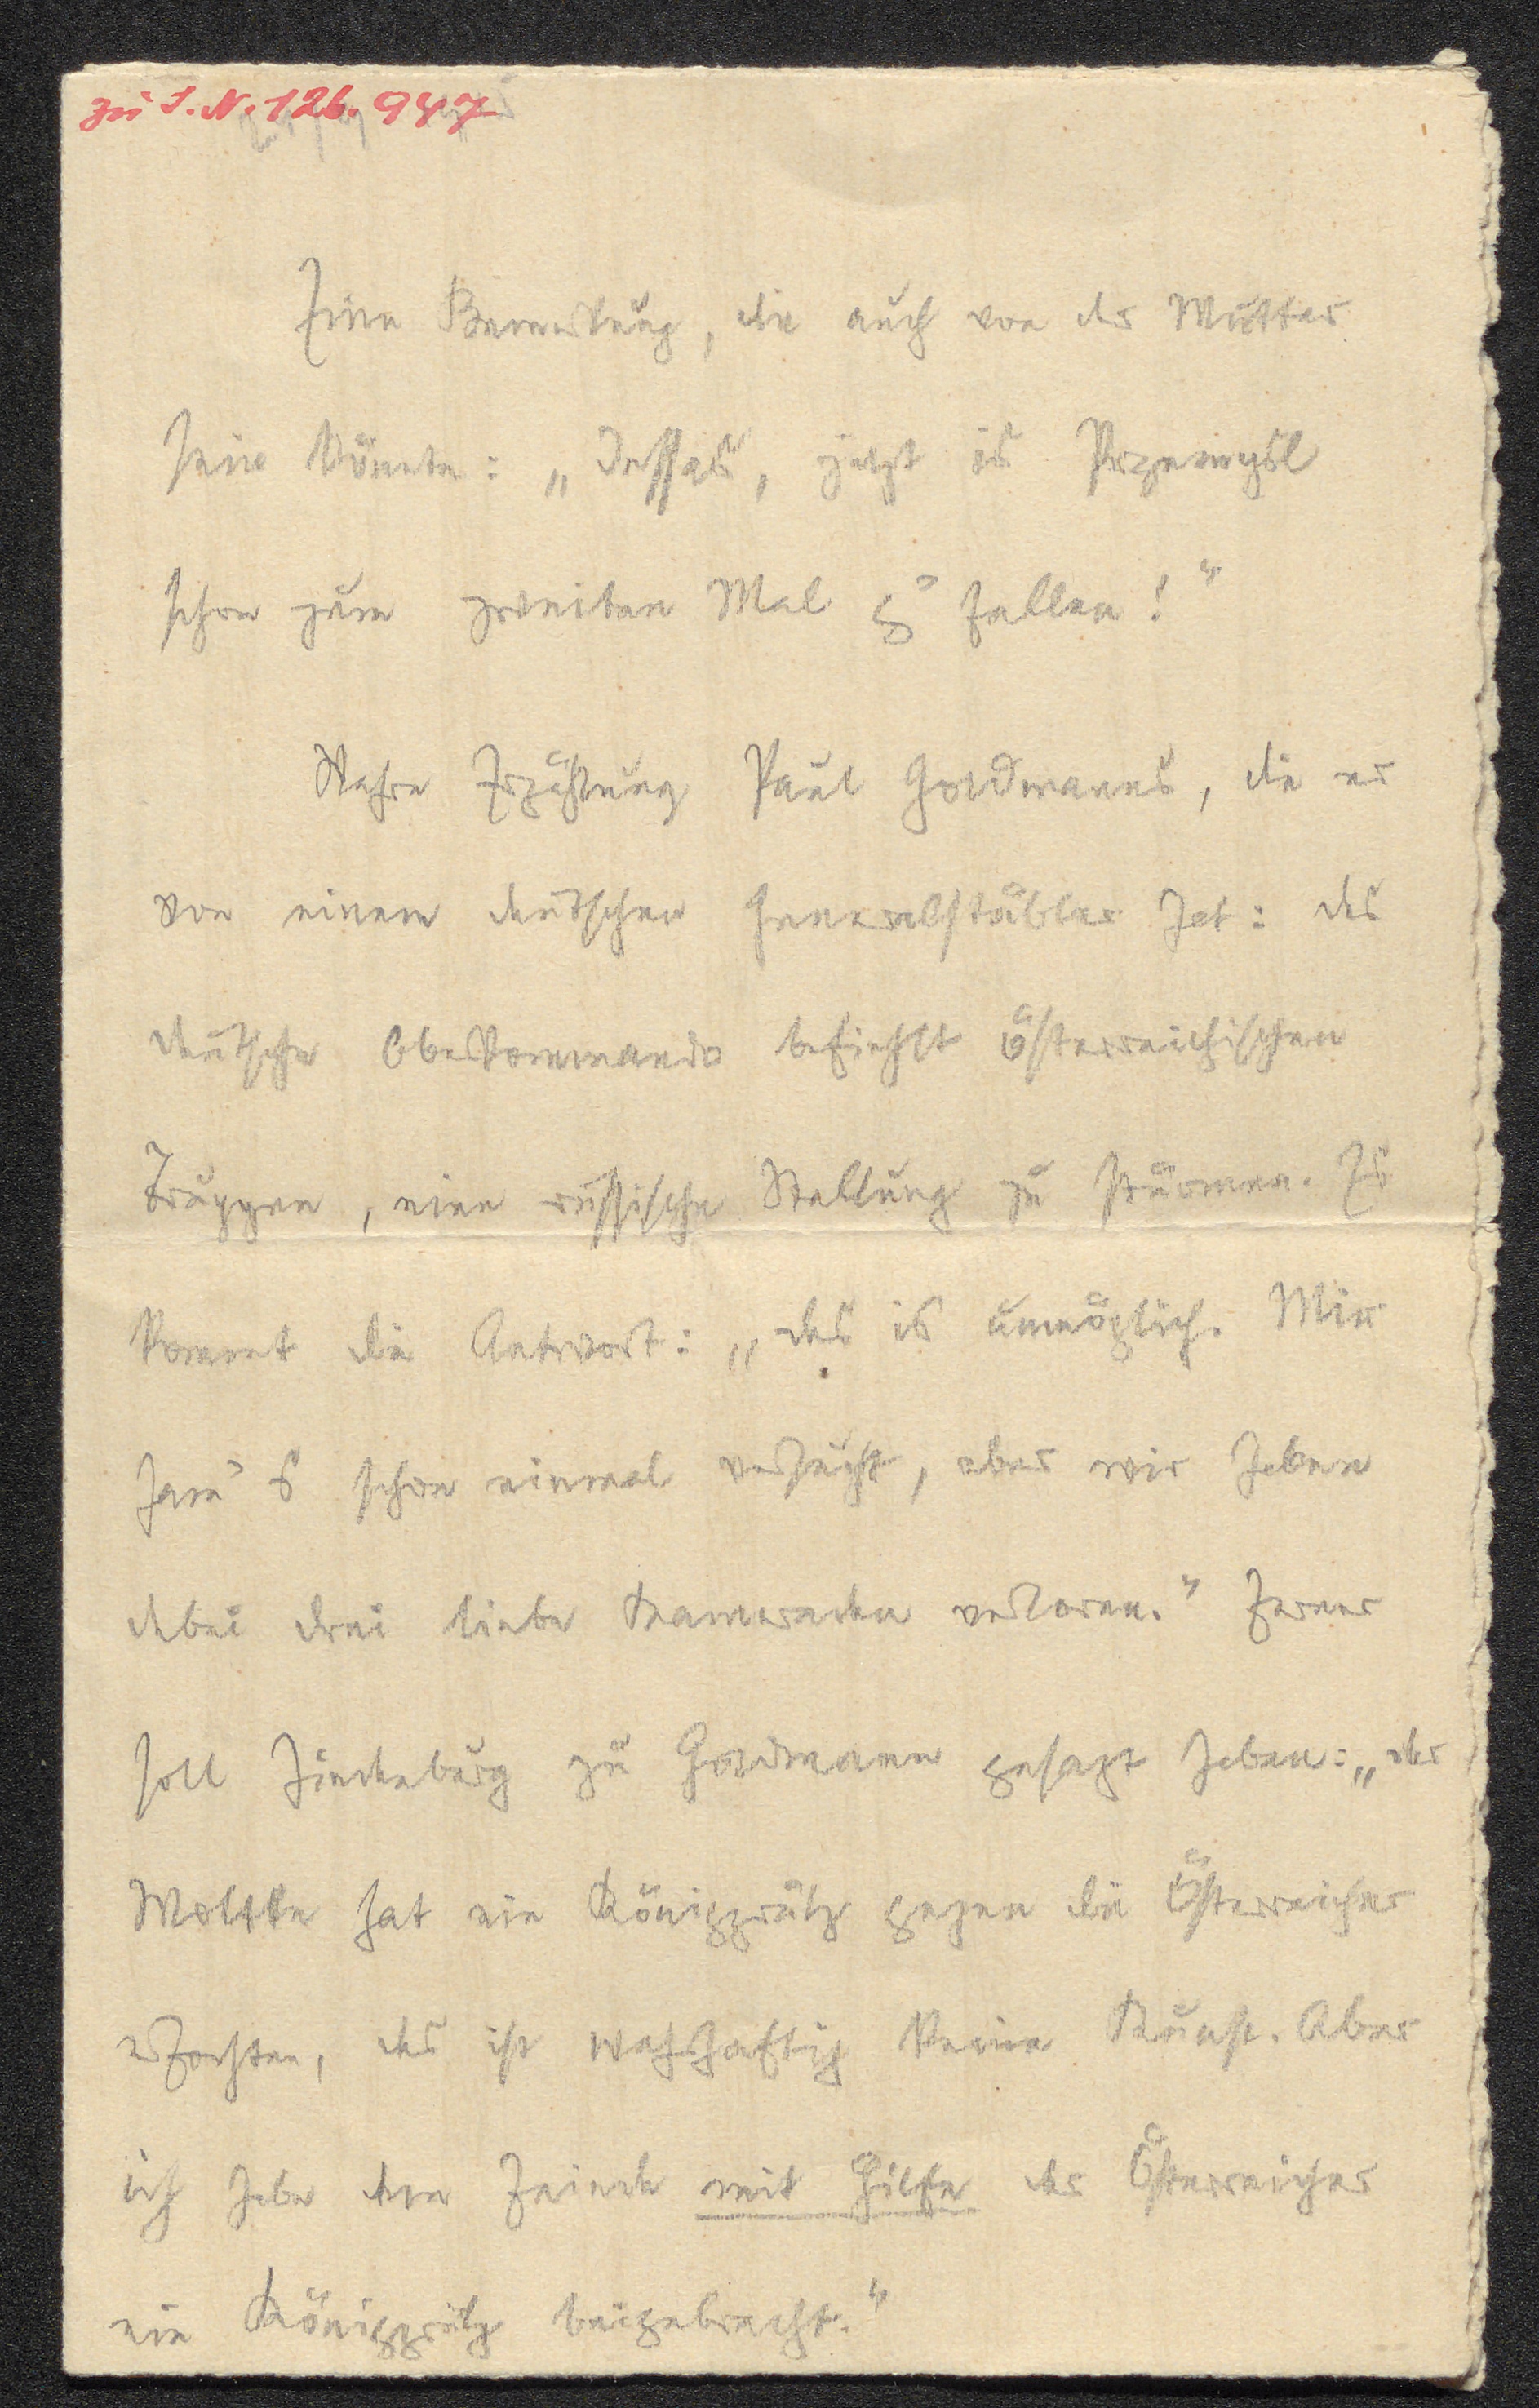 zu I. N. 126.947
Eine Bemerkung, die auch von der Mutter
sein könnte: „Dessas, jetzt is Przemysl
schon zum zweiten Mal g'fallen!“
Wahre Erzählung Paul Goldmanns, die er
von einem deutschen Generalstäbler hat: das
deutsche Oberkommando befiehlt österreichischen
Truppen, eine russische Stellung zu stürmen. Es
kommt die Antwort: „das is unmöglich. Mir
ham's schon einmal versucht, aber wir haben
dabei drei liebe Kameraden verloren.“ Ferner
soll Hindenburg zu Goldmann gesagt haben: „der
Moltke hat ein Königgrätz gegen die Österreicher
erfochten, das ist wahrhaftig keine Kunst. Aber
ich habe dem Feinde mit Hilfe der Österreicher
ein Königgrätz beigebracht.“